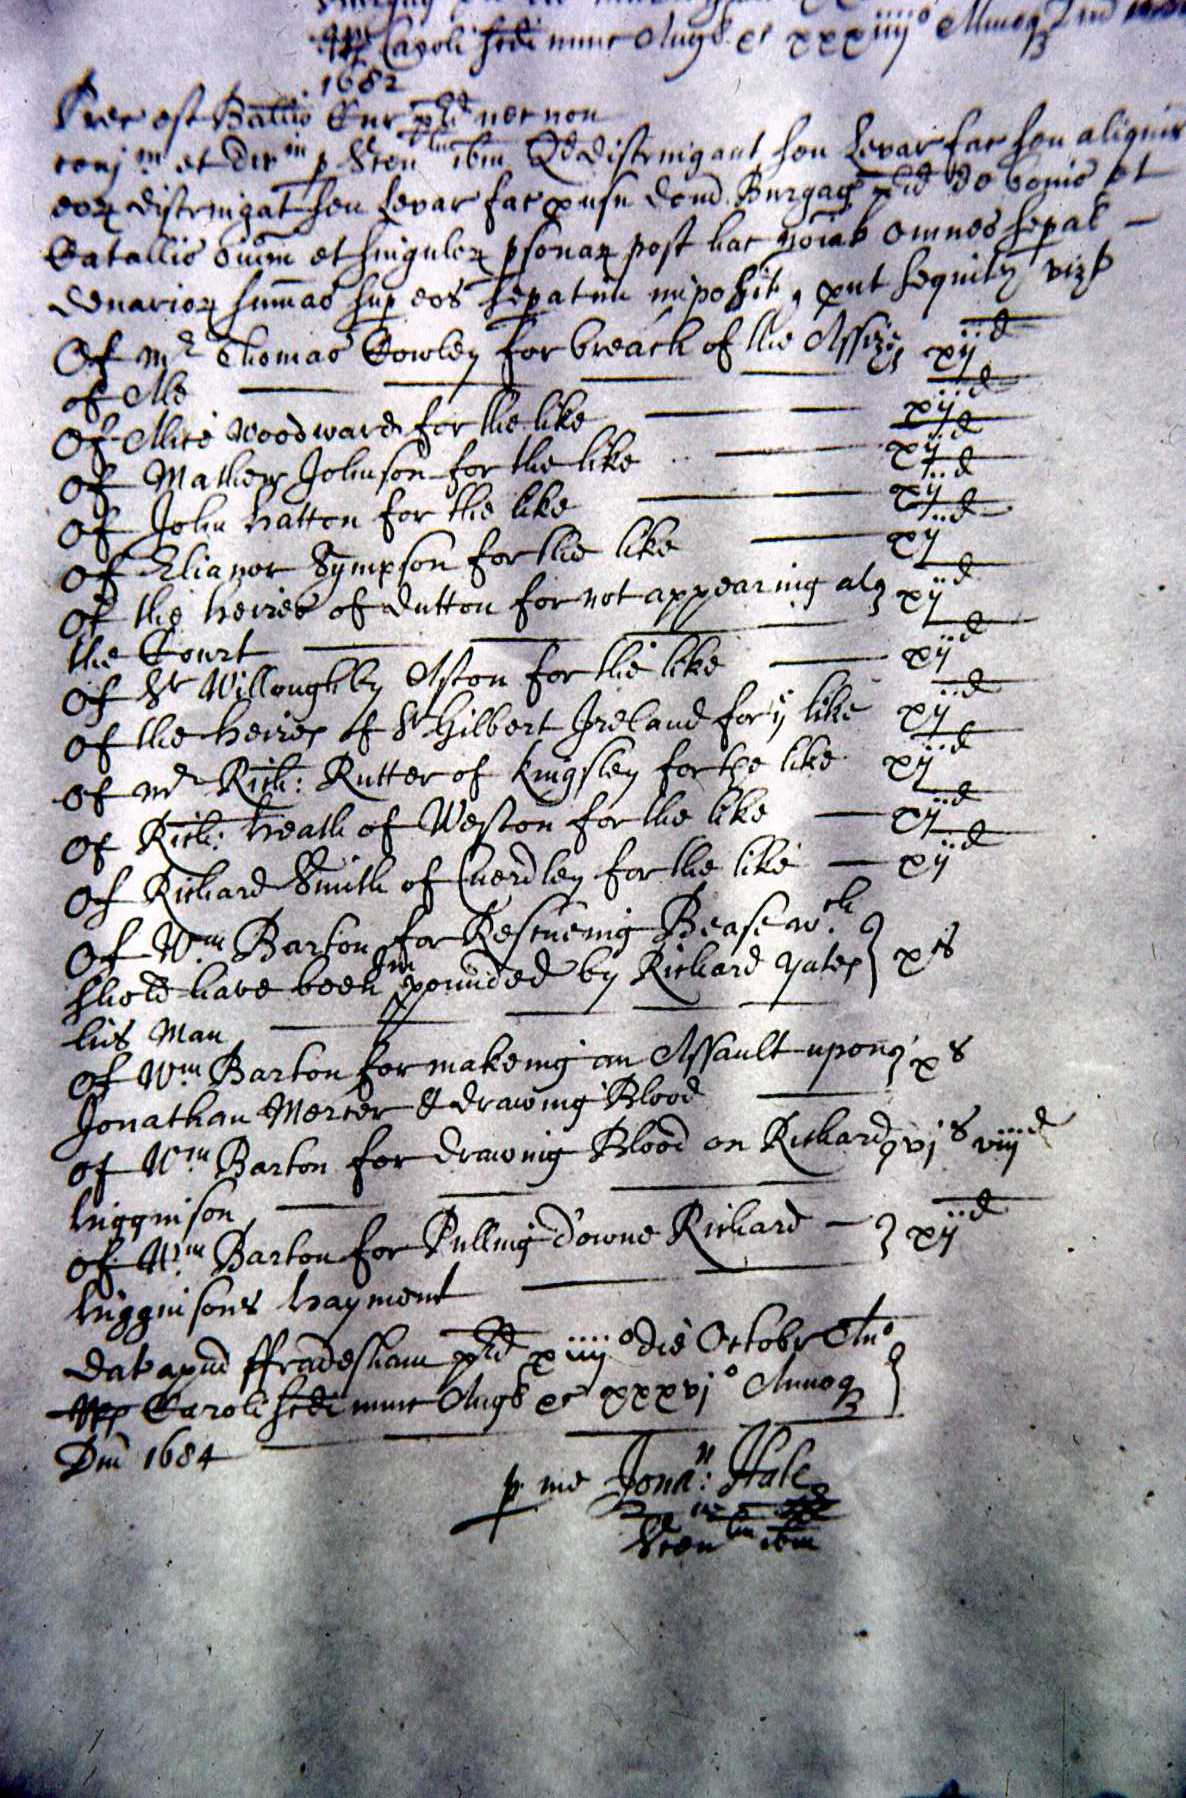 Caroli scdi nunc Angł &c xxxiiij° Annoq Dni
1682
Prec est Ballio Cur pđ nec non
conj m et dir in p Sen lm ibm Qd distringant seu Levar fac seu aliquis
eor distringat seu Levar fac ad usu dom Burgag pđ de bonis et
Catallis oium et singuler psonar post hac noiat omnes sepal —
denarior summas sup eos sepatim imposit, put sequitr vizt
Of mr Thomas Cowley for breach of the Assize } xijd
of Ale
Of Alice Woodward for the like xijd
of Mathew Johnson for the like xijd
of John Hatton for the like xijd
of Elianor Sympson for the like xijd
of the heires of Dutton for not appearing at } xijd
the Court
of Sr Willoughby Aston for the like xijd
of the heires of Sr Gilbert Ireland for ye like xijd
of mr Rich: Rutter of Kingsley for the like xijd
of Rich: heath of Weston for the like xijd
of Richard Smith of Cuerdley for the like xijd
Of Wm Barton for Rescueing Beasts wch }
shold have been Impounded by Richard Yates } xs
his Man
of Wm Barton for makeing an Assault upon } xs
Jonathan Mercer & drawing Blood
of Wm Barton for drawing Blood on Richard } vjs viijd
higginson
of Wm Barton for Pulling downe Richard — } xijd
higginsons hayment
Dat apud ffradesham pđ xiiij° die Octobr An°
Caroli scdi nunc Angł &c xxxvj° Annoq
Dni 1684
p me Jonan: Hale
Senlm ibm